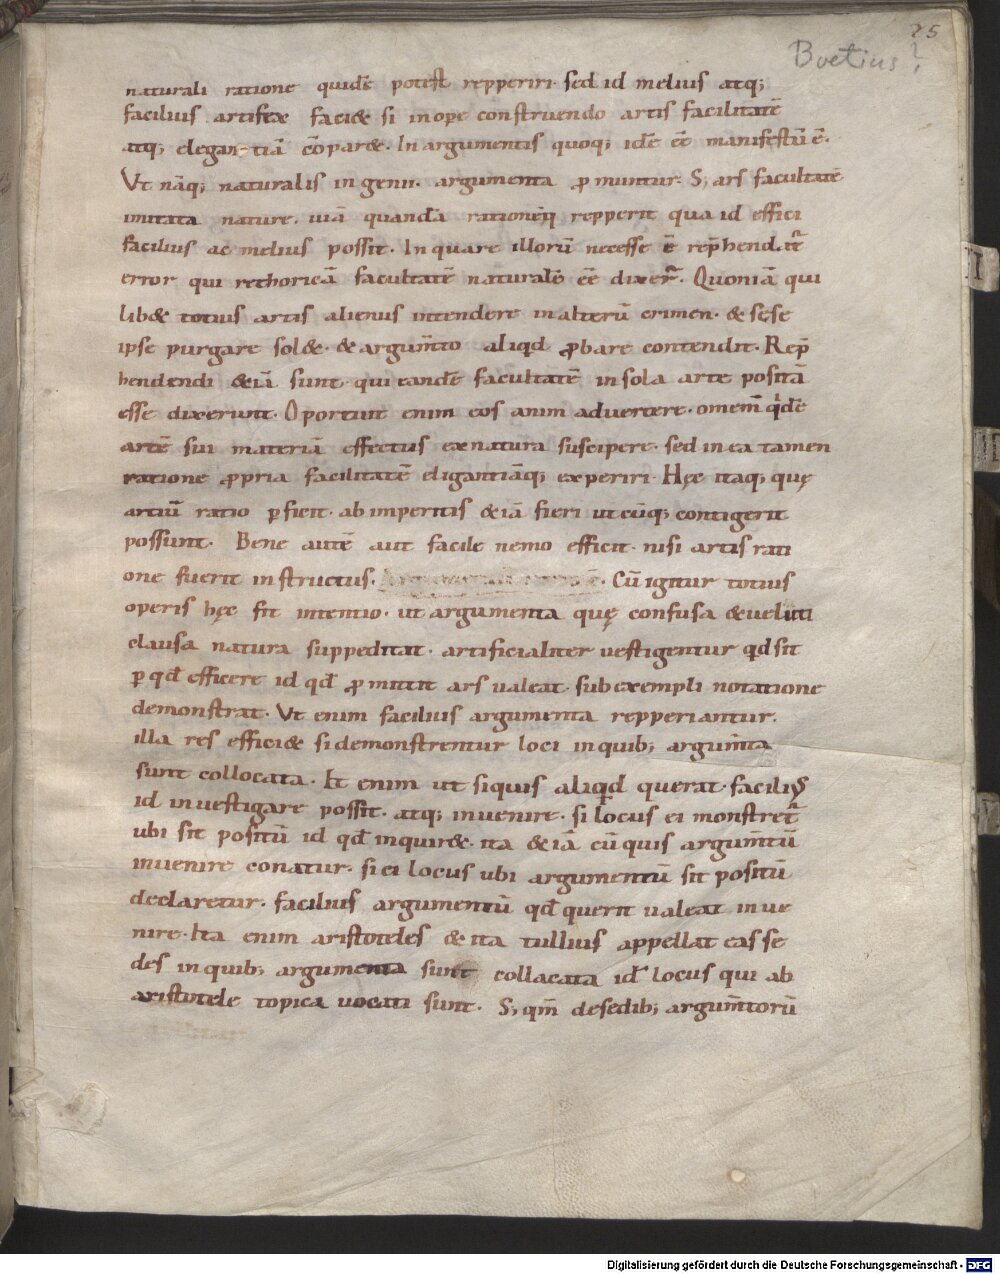 25
Boetius?
naturali ratione quidē potest repperiri· sed id melius atq;
facilius artifex faci& si in opere construendo artis facilitatē
atq; elegantiā cōpar&· In argumentis quoq; idē eē manifestū ē·
Vt nāq; naturalis ingenii· argumenta promuntur· S; ars facultatē
imitata nature· uiā quandā rationēq; repperit qua id effici
facilius ac melius possit· In quare illorū necesse ē rep̄hendat᷑
error qui rethoricā facultatē naturalē eē dixer᷑· Quoniā qui
lib& totius artis alienus intendere in alterū crimen· & sese
ipse purgare sol&· & argum̄to aliqd ꝓbare contendit· Rep̄
hendendi &iā sunt· qui eandē facultatē in sola arte positā
esse dixerunt· Oportuit enim eos animadvertere· omem̄ qdē
artē sui materiā effectus ex natura suscipere· sed in ea tamen
ratione ꝓpria facilitatē eligantiāq; experiri· Hęc itaq; quę
artiū ratio ꝑficit· ab imperitis &iā fieri ut cūq; contigerit
possunt· Bene autē aut facile nemo efficit· nisi artis rati
one fuerit instructus· Cū igitur totius
operis hęc fit intentio· ut argumenta quę confusa & veluti
clausa natura suppeditat· artificialiter vestigentur qd sit
ꝑ qđ efficere id qđ ꝓmittit ars valeat· sub exempli notatione
demonstrat· Vt enim facilius argumenta repperiantur·
illa res effici& si demonstrentur loci in quib; argum̄ta
sunt collocata· Et enim ut siquis aliqd querat· facilius
id investigare possit· atq; invenire· si locus ei monstret᷑
ubi sit positū id qđ inquir&· ita &iā cū quis argum̄tū
invenire conatur· si ei locus ubi argumentū sit positū
declaretur· facilius argumentū qđ querit valeat inve
nire· Ita enim aristoteles & ita tullius appellat eas se
des in quib; argumenta sunt collacata idē locus qui ab
aristotele topica vocati sunt· S; qm̄ de sedib; argum̄torū
II
Digitalisierung gefördert durch die Deutsche Forschungsgemeinschaft - DFG